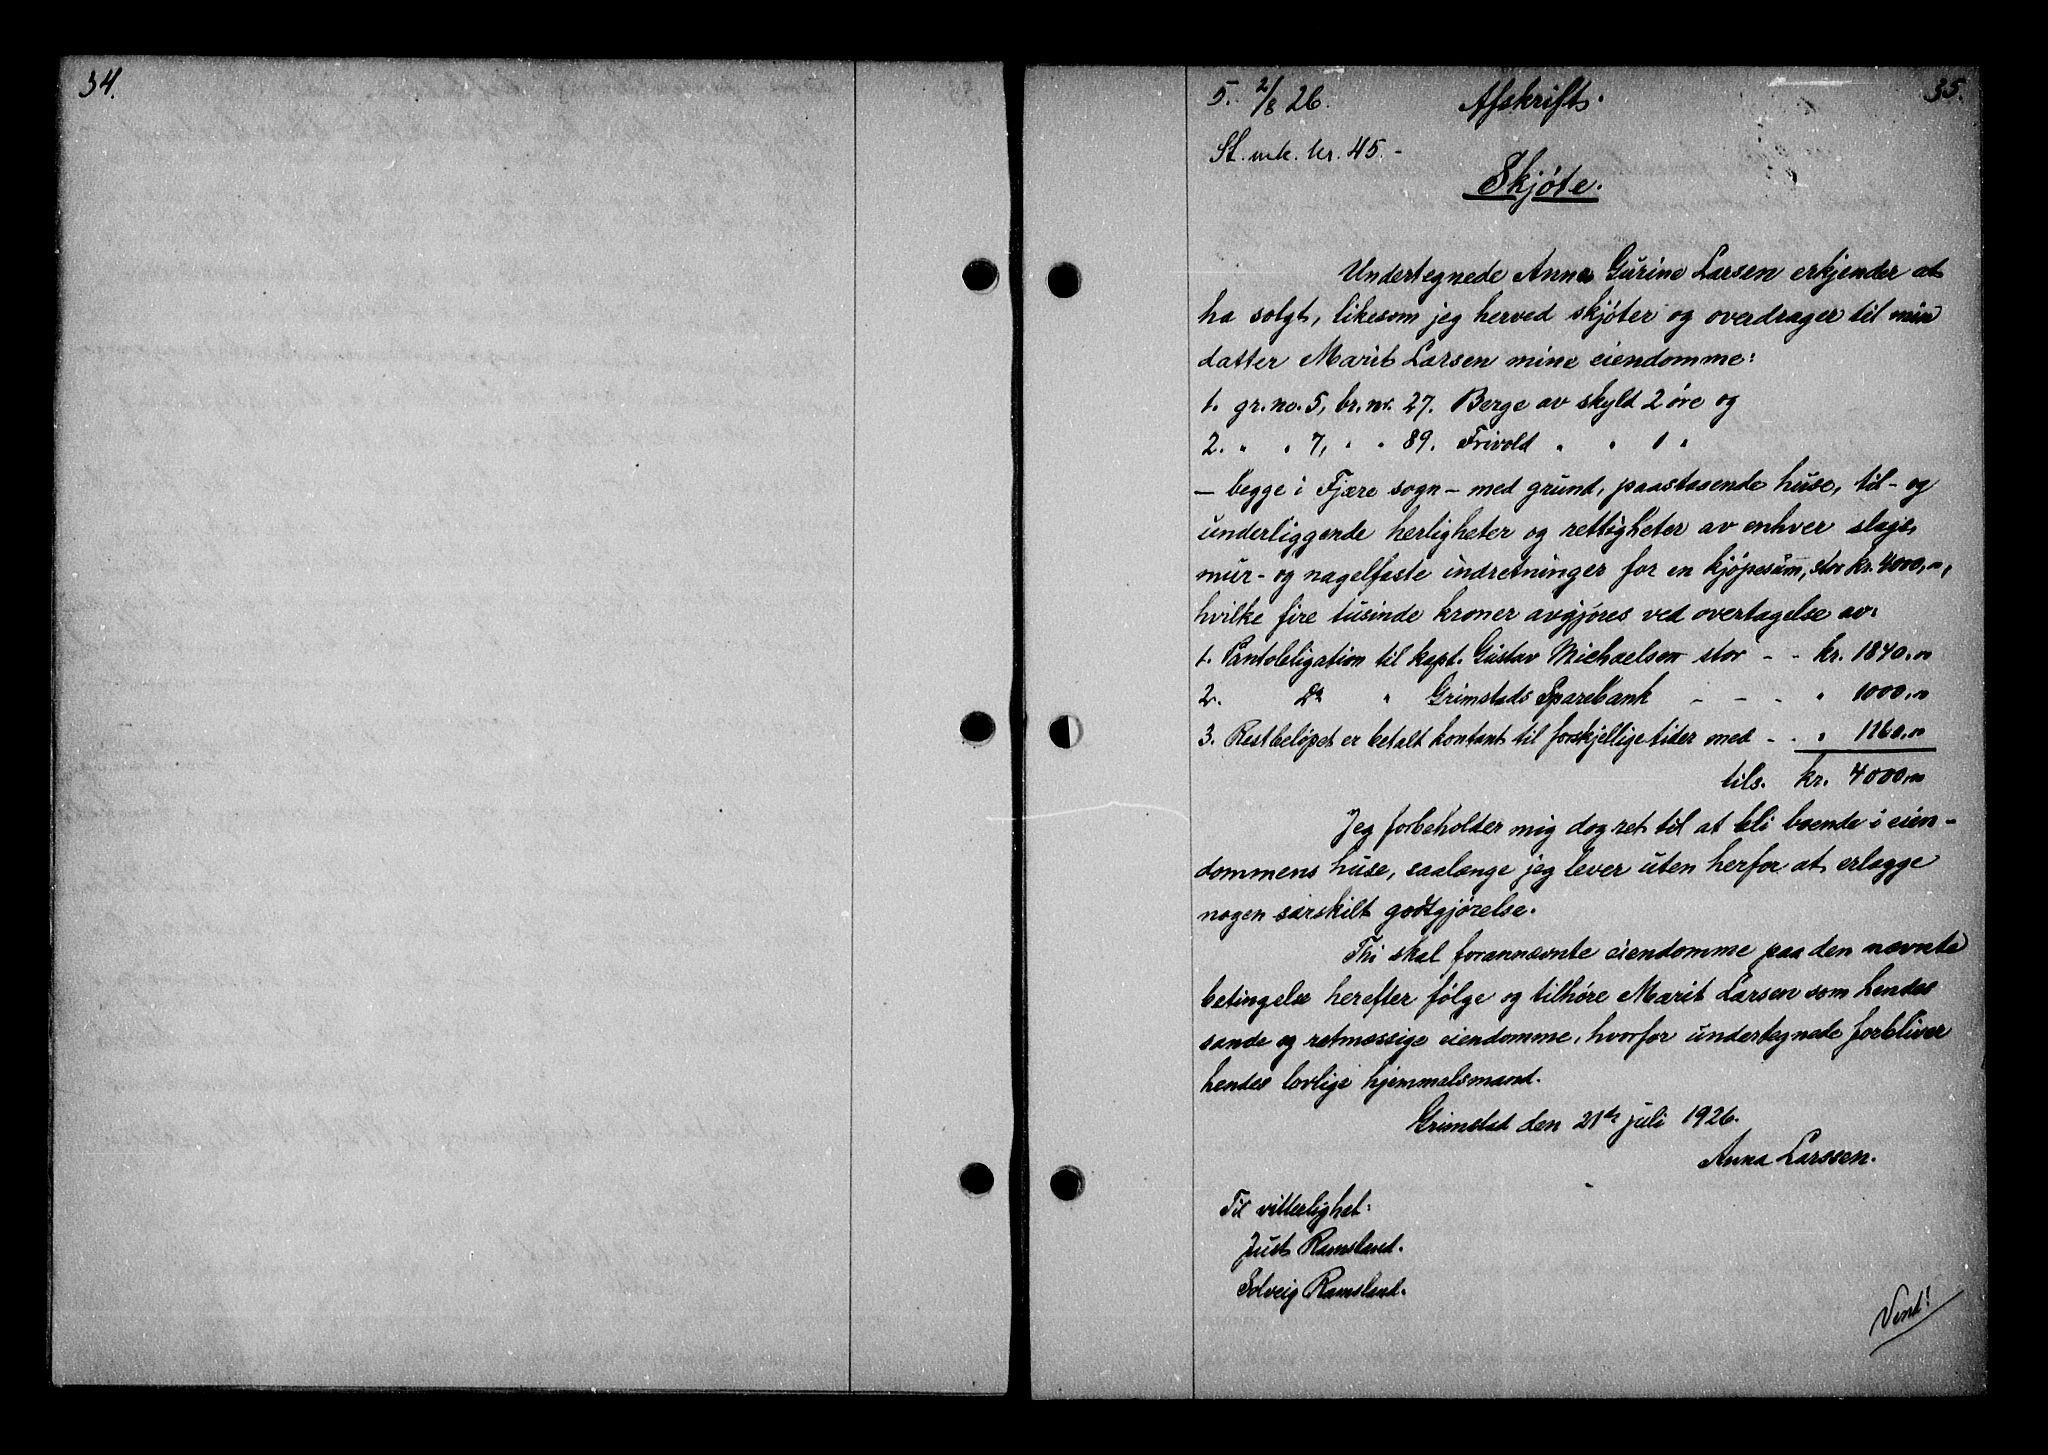 34.
35.
5. 2/8 26. Afskrift.
St. mk. kr. 45.-
Skjøte.
Undertegnede Anna Gurine Larsen erkjender at
ha solgt, likesom jeg herved skjøter og overdrager til min
datter Marit Larsen mine eiendomme:
1. gr. no. 5, br. nr. 27. Berge av skyld 2 øre og
2. " " 7, " " 89. Frivold " " 1 "
— begge i Fjære sogn — med grund, paastaaende huse, til- og
underliggende herligheter og rettigheter av enhver slags,
mur- og nagelfaste indretninger for en kjøpesum, stor kr. 4000,00,
hvilke fire tusinde kroner avgjøres ved overtagelse av:
1. Pantobligation til kapt. Gustav Michaelsen stor - - kr. 1840.00
2. Do " Grimstads Sparebank - - - " 1000,00
3. Restbeløpet er betalt kontant til forskjellige tider med - - " 1160,00
tils. kr. 4000,00
Jeg forbeholder mig dog ret til at bli boende i eien-
dommens huse, saalænge jeg lever uten herfor at erlægge
nogen særskilt godtgjørelse.
Thi skal forannævnte eiendomme paa den nævnte
betingelse herefter følge og tilhøre Marit Larsen som hendes
sande og retmæssige eiendomme, hvorfor undertegnede forbliver
hendes lovlige hjemmelsmand.
Grimstad den 21de juli 1926.
Anna Larssen.
Til vitterlighet:
Just Ramsland.
Solveig Ramsland.
Vend!